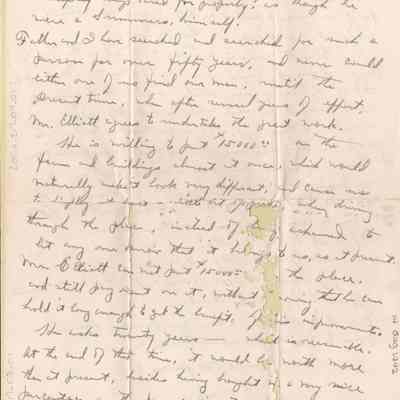 things cared for properly: as though he
were a Summers, himself.
Father and I have searched and searched for such a
person for over fifty years, and never could
either one of us find our man, until the
present time, when after several years of effort,
Mr. Elliott agrees to undertake the great work.
He is willing to put $15000.00 on the
farm and buildings almost at once, which would
naturally make it look very different, and cause us
to have a little bit of pride when driving
through the place, instead of being ashamed to
let any one know that it belongs to us, as at present.
Mr. Elliott can not put $15000 the place,
and still pay rent on it, without knowing that he can
hold it long enough to get the benefit of his improvements.
He asks twenty years — which is reasonable.
At the end of that time, it would be worth more
than at present, besides having brought in a very nice
percentage